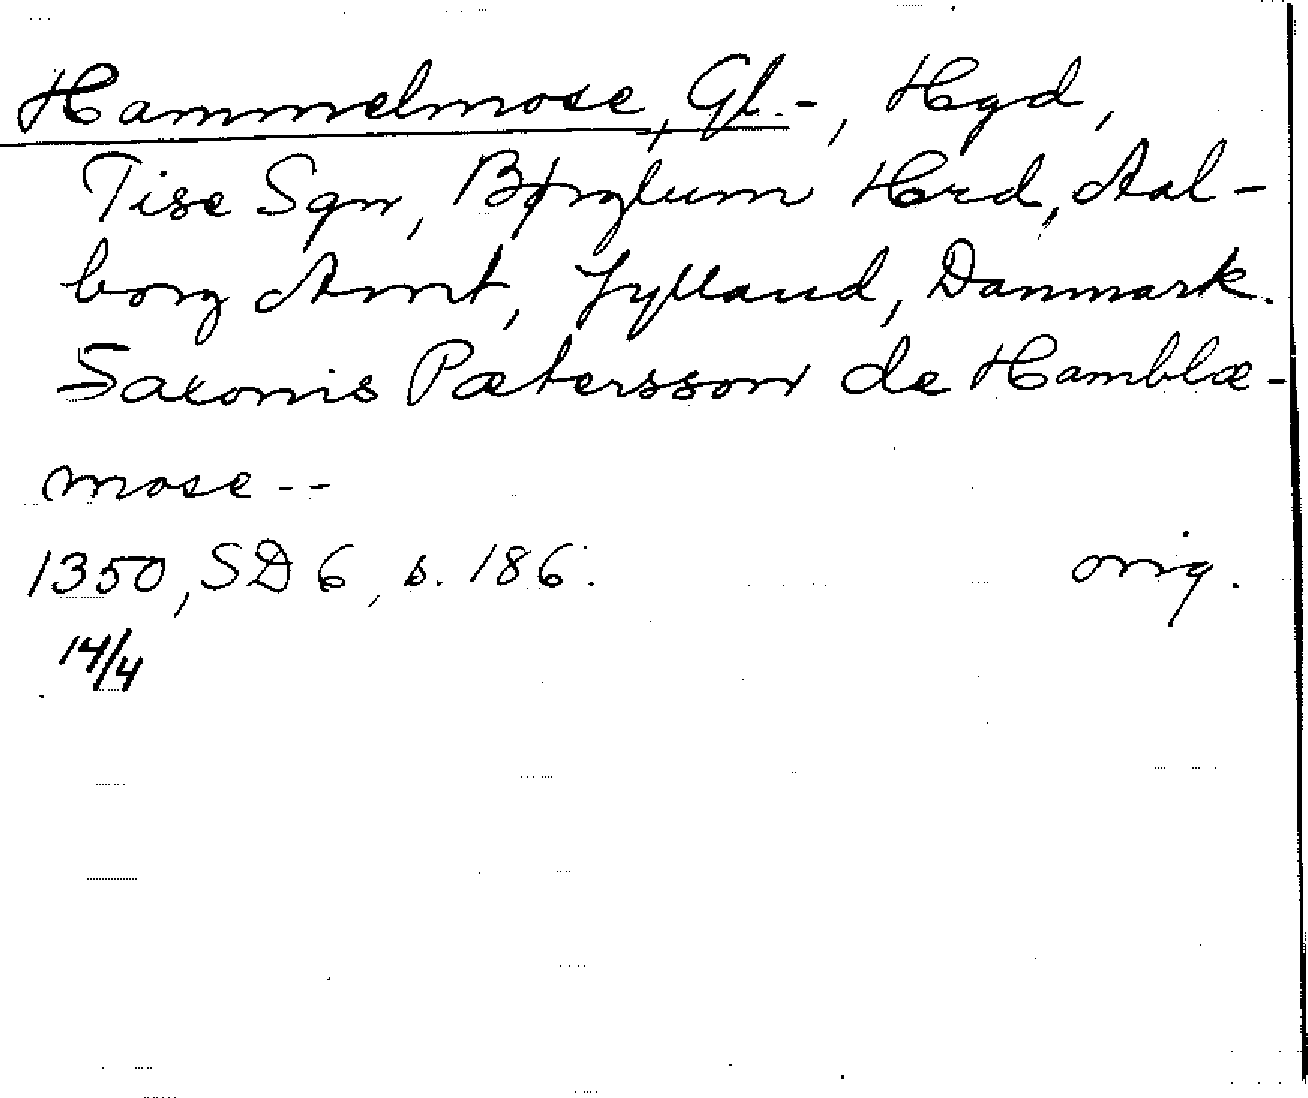 Hammelmose, Gl.-, Hgd,
Tise Sgn, Børglum Hrd, Aal-
borg Amt, Jylland, Danmark.
Saxonis Pætersson de Hamblæ-
mose--
1350, SD 6, s. 186. orig.
14/4